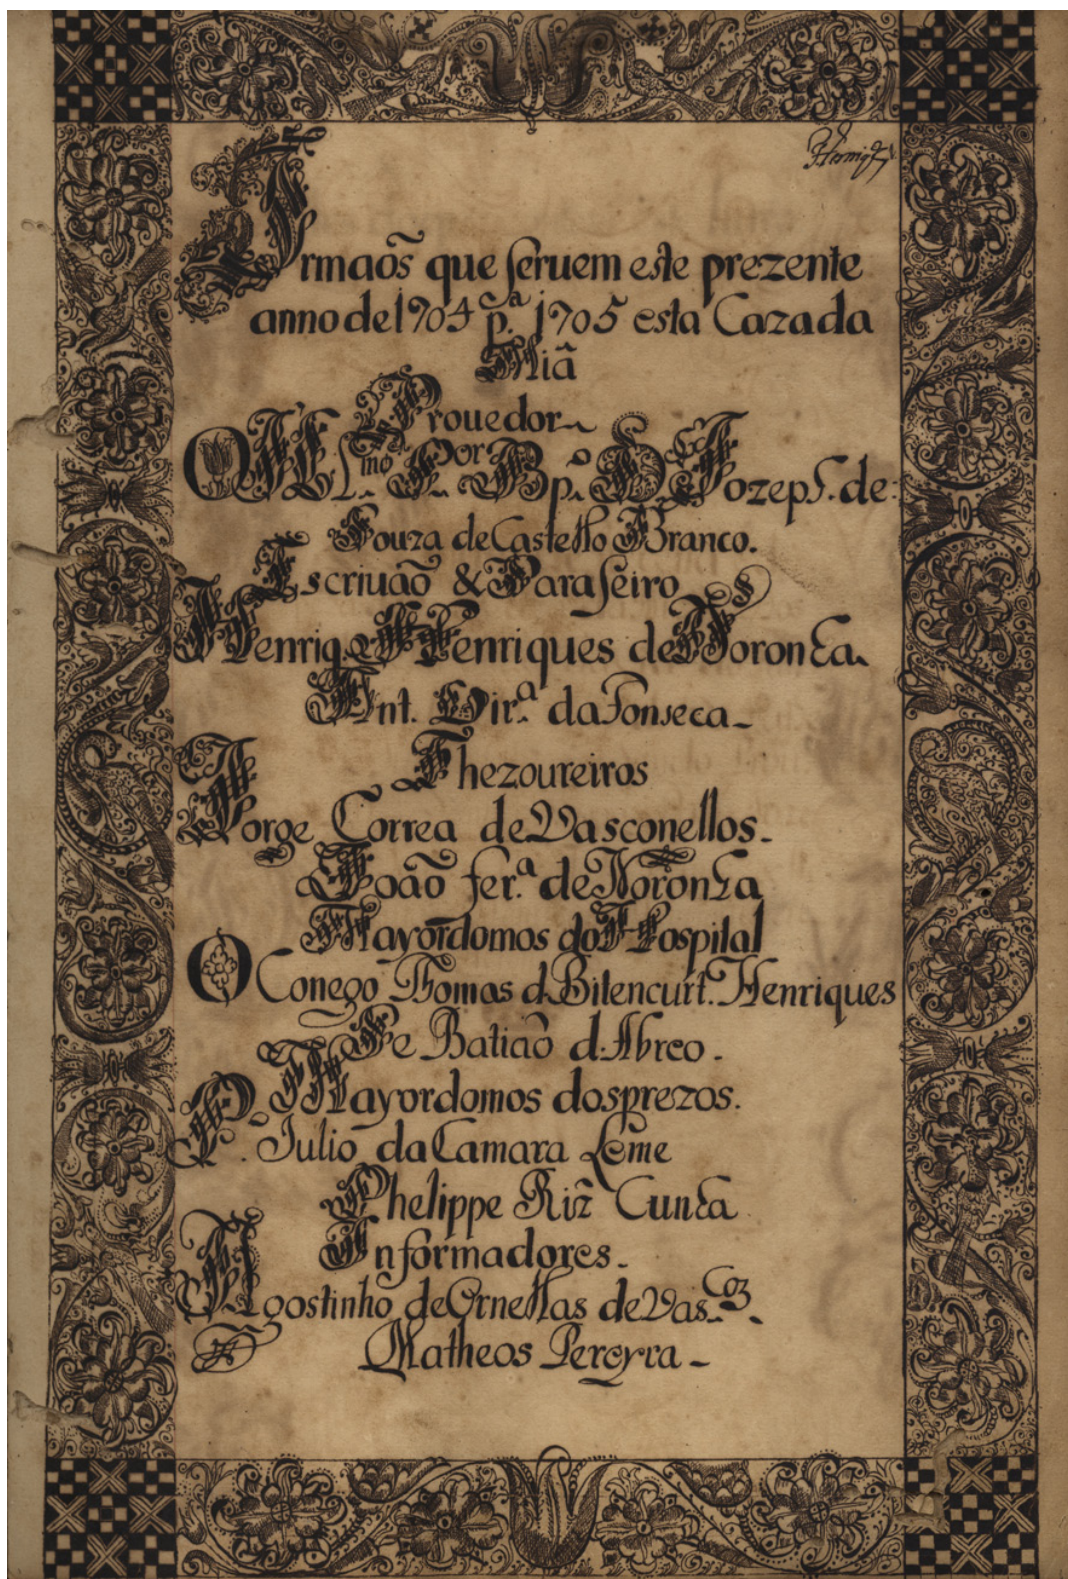 Irmaõs que seruem este prezente
anno de 1704 p.ª 1705 esta Caza da
Miã
Prouedor
O Ill.mo S.or Bp.o D. Jozeph. de:
Souza de Castello Branco.
Escriuaõ & Paraseiro
Henriq. Henriques de Noronha.
Ant. Vir.ª da Fonseca
Thezoureiros
Jorge Correa de Vasconellos.
Joaõ fer.ª de Noronha
Mayordomos do Hospital
O Conego Thomas d. Bitencurt. Henriques
Se Batiaõ d. Abreo.
Mayordomos dos prezos.
P. D. Julio da Camara Leme
Phelippe Riz̃ Cunha
Informadores.
Agostinho de Ornellas de Vas.cos.
Matheos Pereyra